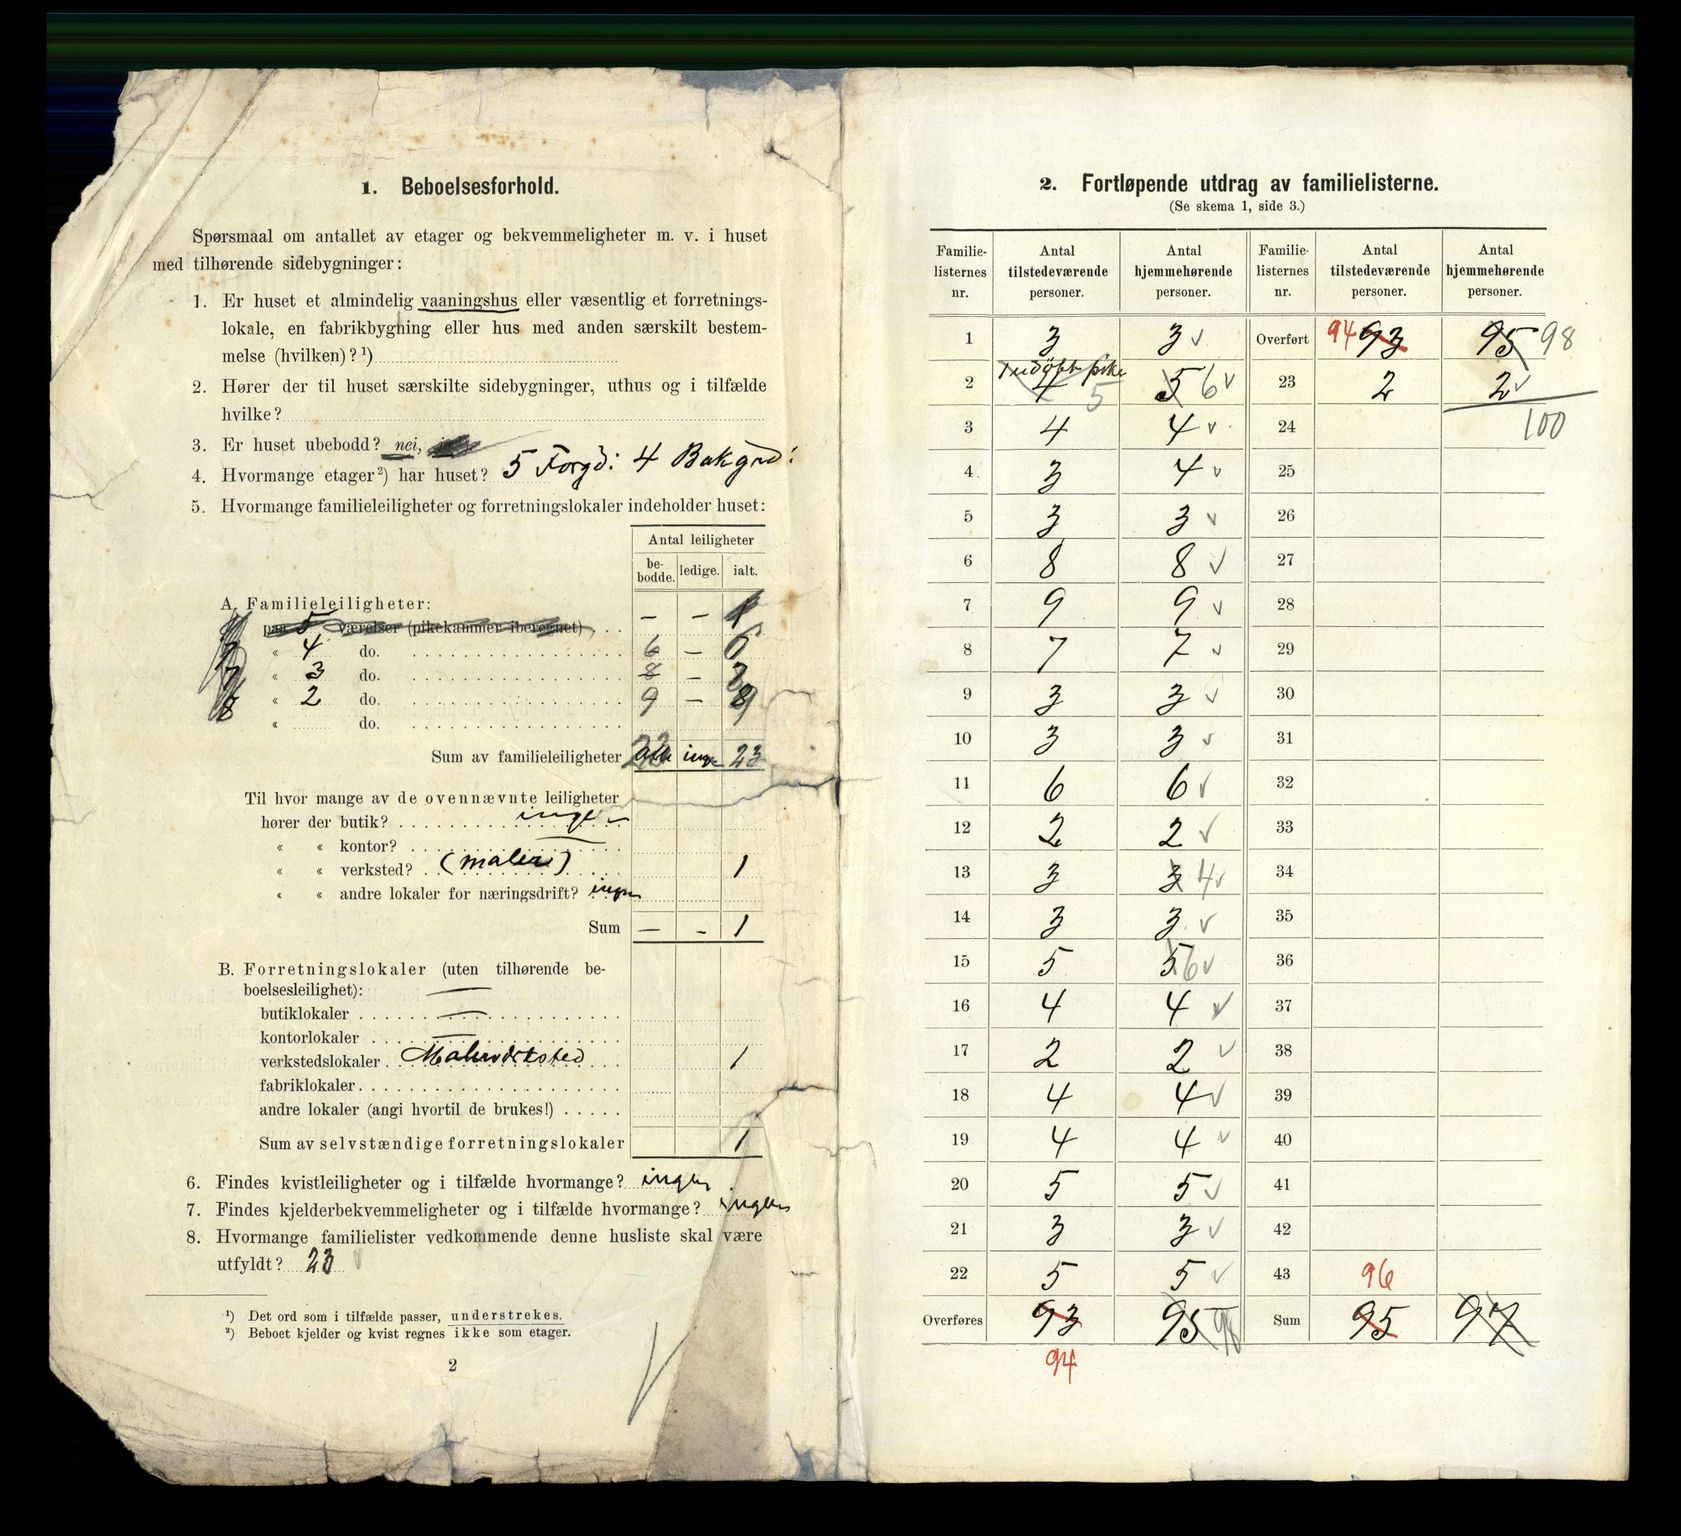 1. Beboelsesforhold.
Spørsmaal om antallet av etager og bekvemmeligheter m. v. i huset
med tilhørende sidebygninger:
1. Er huset et almindelig vaaningshus eller væsentlig et forretnings-
lokale, en fabrikbygning eller hus med anden særskilt bestem-
melse (hvilken)? ¹)
2. Hører der til huset særskilte sidebygninger, uthus og i tilfælde
hvilke?
3. Er huset ubebodd? nei,
4. Hvormange etager ²) har huset? 5 Forgd: 4 Bakgrd:
5. Hvormange familieleiligheter og forretningslokaler indeholder huset:
Antal leiligheter
be-bodde. ledige. ialt.
A. Familieleiligheter: — — 1
paa 5 værelser (pikekammer iberegnet)
7 « 4 do. 6 — 6
7 « 3 do. 8 — 8
8 « 2 do. 9 — 9
« do.
Sum av familieleiligheter 23 inge 23
Til hvor mange av de ovennævnte leiligheter
hører der butik? inge
« « kontor? —
« « verksted? (maler) 1
« « andre lokaler for næringsdrift? ingen
Sum — - 1
B. Forretningslokaler (uten tilhørende be-
boelsesleilighet): —
butiklokaler —
kontorlokaler —
verkstedslokaler Malerværksted 1
fabriklokaler
andre lokaler (angi hvortil de brukes!)
Sum av selvstændige forretningslokaler 1
6. Findes kvistleiligheter og i tilfælde hvormange? ingen
7. Findes kjelderbekvemmeligheter og i tilfælde hvormange? ingen
8. Hvormange familielister vedkommende denne husliste skal være
utfyldt? 23
¹) Det ord som i tilfælde passer, understrekes.
²) Beboet kjelder og kvist regnes ikke som etager.
2
2. Fortløpende utdrag av familielisterne.
(Se skema 1, side 3.)
Familie-listernes nr. Antal tilstedeværende personer. Antal hjemmehørende personer. Familie-listernes nr. Antal tilstedeværende personer. Antal hjemmehørende personer.
1 3 3 v Overført 94 93 95 98
2 1 udøpt pike 4 5 5 6 v 23 2 2 v
3 4 4 v 24 100
4 3 4 v 25
5 3 3 v 26
6 8 8 v 27
7 9 9 v 28
8 7 7 v 29
9 3 3 v 30
10 3 3 v 31
11 6 6 v 32
12 2 2 v 33
13 3 3 4 v 34
14 3 3 v 35
15 5 5 6 v 36
16 4 4 v 37
17 2 2 v 38
18 4 4 v 39
19 4 4 v 40
20 5 5 v 41
21 3 3 v 42
22 5 5 v 43 96
Overføres 93 95 98 Sum 95 97
94